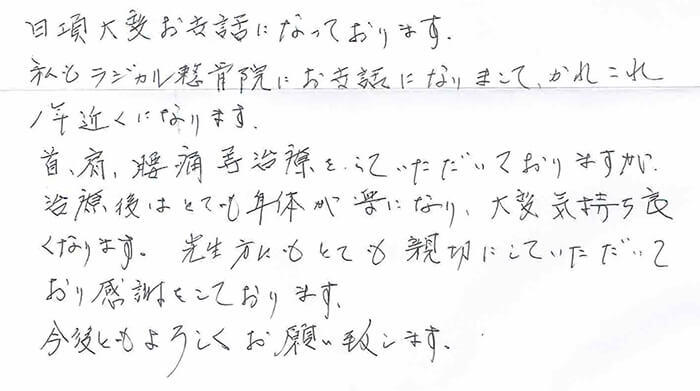 日頃大変お世話になっております。
私もラジカル整骨院にお世話になりまして、かれこれ
1年近くになります。
首、肩、腰痛等治療をしていただいておりますが、
治療後はとても身体が楽になり、大変気持ち良
くなります。先生方にもとても親切にしていただいて
おり感謝をしております。
今後ともよろしくお願い致します。